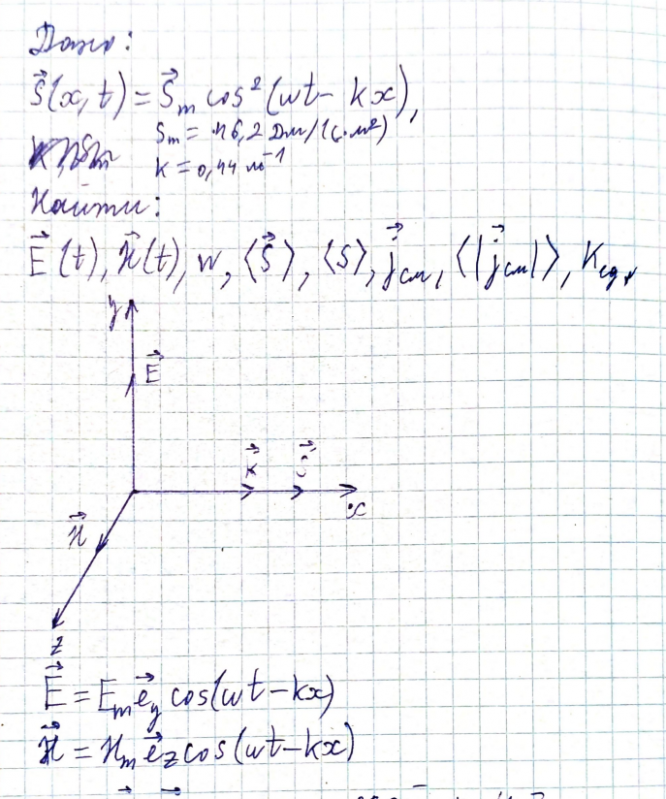 Дано:
S⃗(x, t) = S⃗ₘ cos²(ωt − kx),
Sₘ = 16,2 Дж/(с·м²)
k = 0,44 м⁻¹
Найти:
E⃗(t), H⃗(t), w, ⟨S⃗⟩, ⟨S⟩, j⃗см, ⟨|j⃗см|⟩, Kед.
y
E⃗
k⃗
x
H⃗
z
E⃗ = Eₘe⃗y cos(ωt − kx)
H⃗ = Hₘe⃗z cos(ωt − kx)